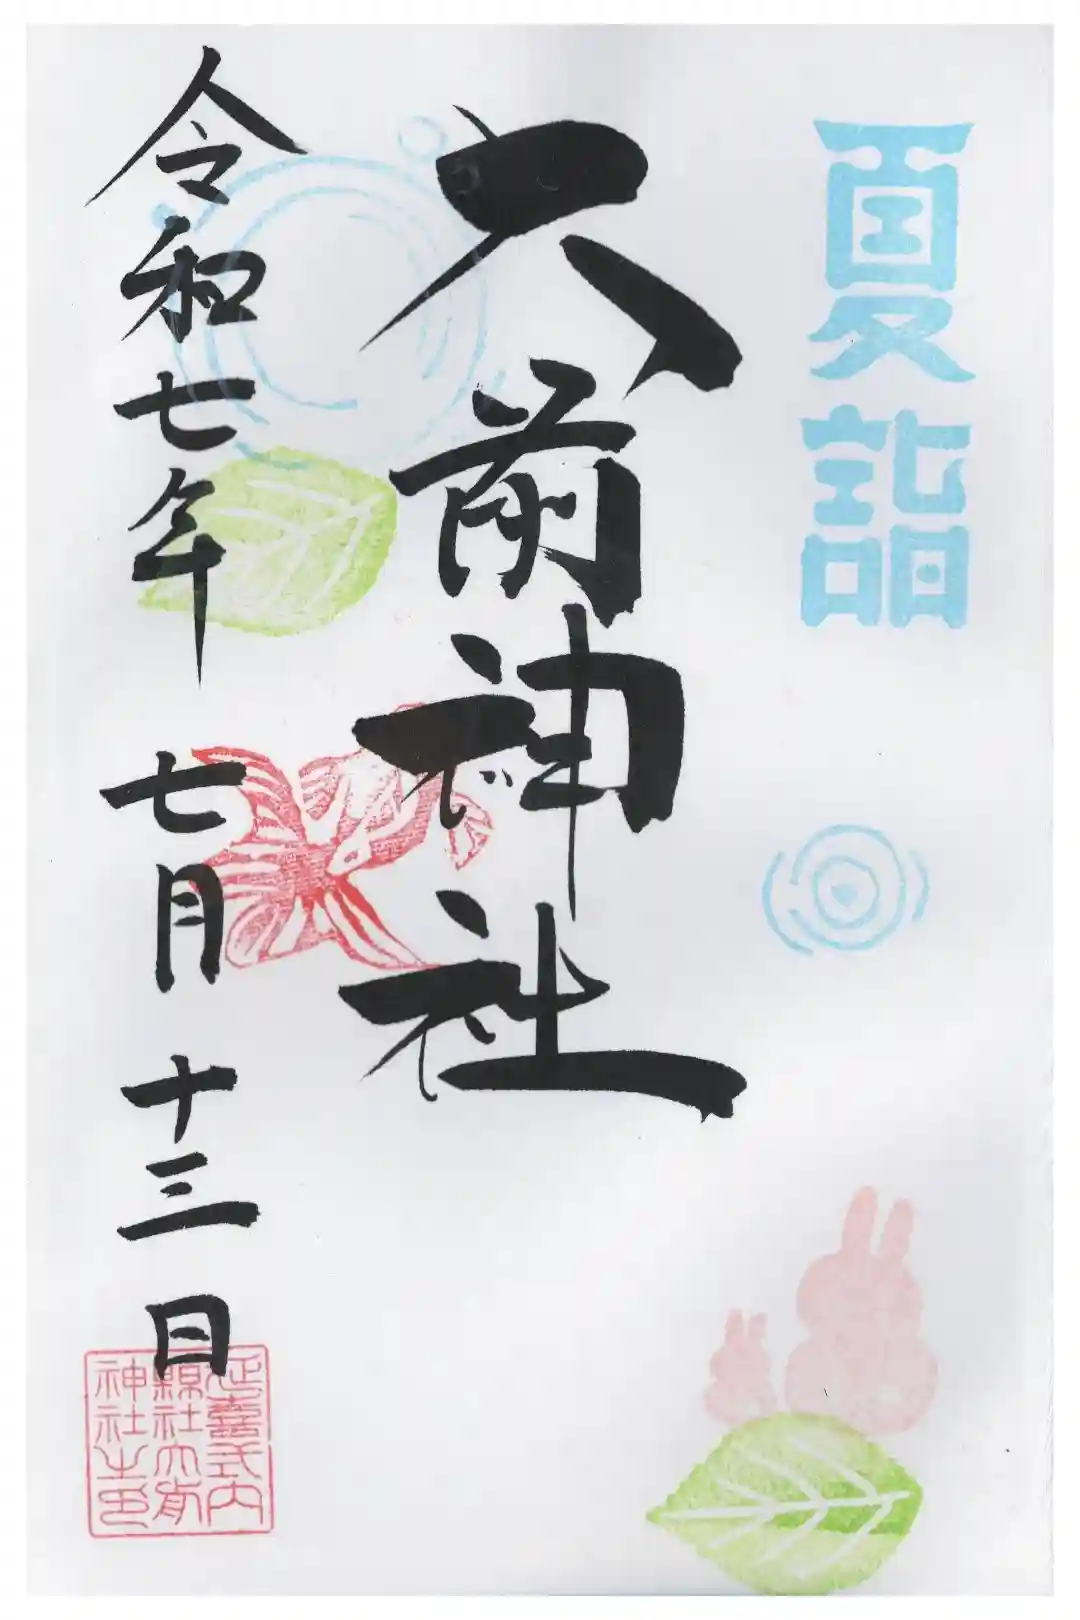 夏詣
大前神社
令和七年 七月 十三日
延喜式内
縣社大前
神社之印